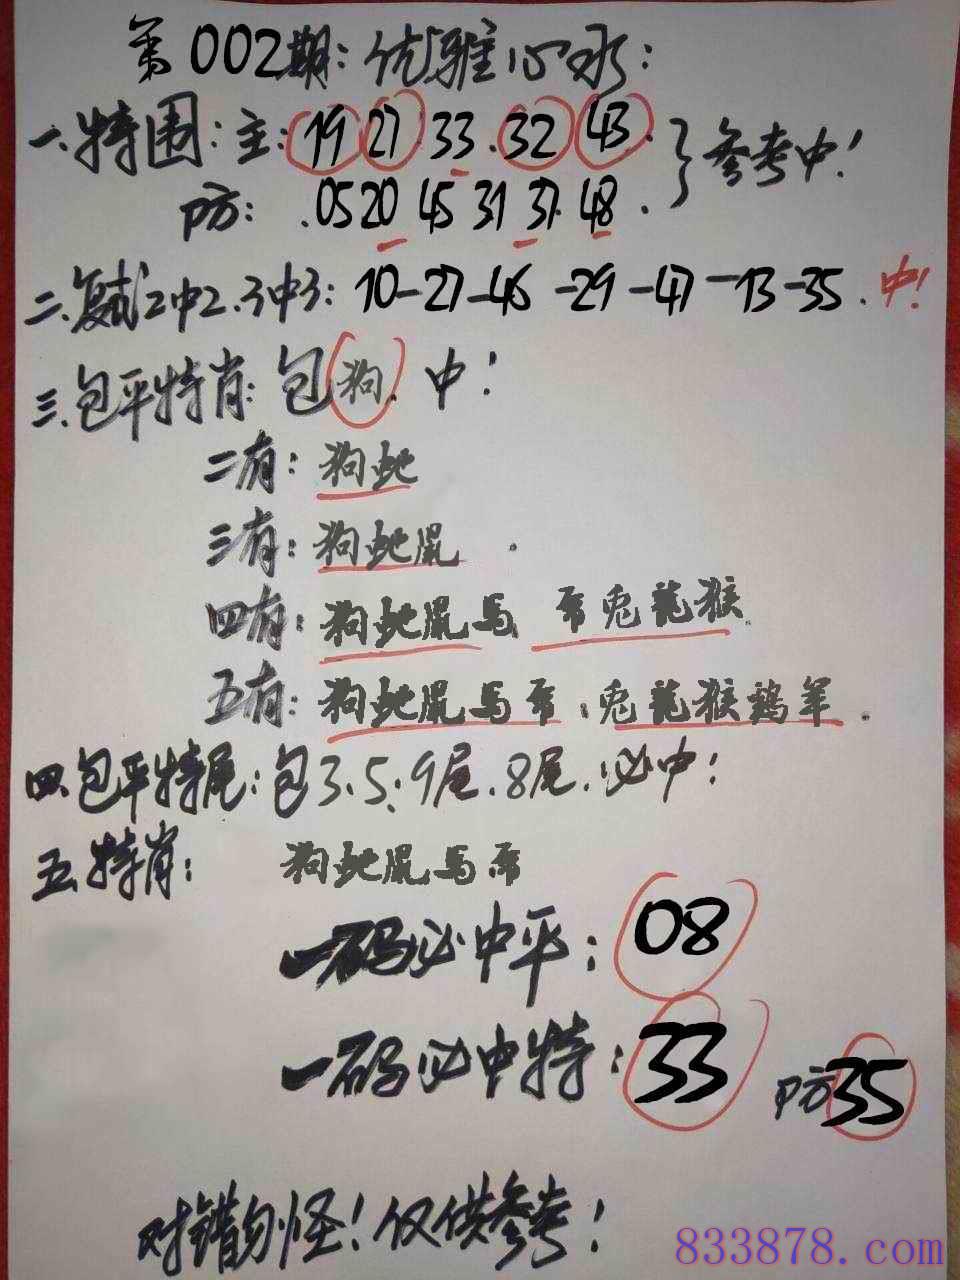 第002期：优雅心水：
一.特围：主：19 27 33.32 43.}参考中！
防：.05 20 45 31 37.48.
二.复试2中2.3中3：10-27-46-29-47-13-35.中！
三.包平特肖：包狗.中！
二有：狗蛇
三有：狗蛇鼠.
四有：狗蛇鼠马 兔龙猴
五有：狗蛇鼠马 兔龙猴鸡羊.
四.包平特尾：包3.5.9尾.8尾.必中！
五.特肖：狗蛇鼠马
一码必中平：08
一码必中特：33 防35
对错勿怪！仅供参考！
833878.com